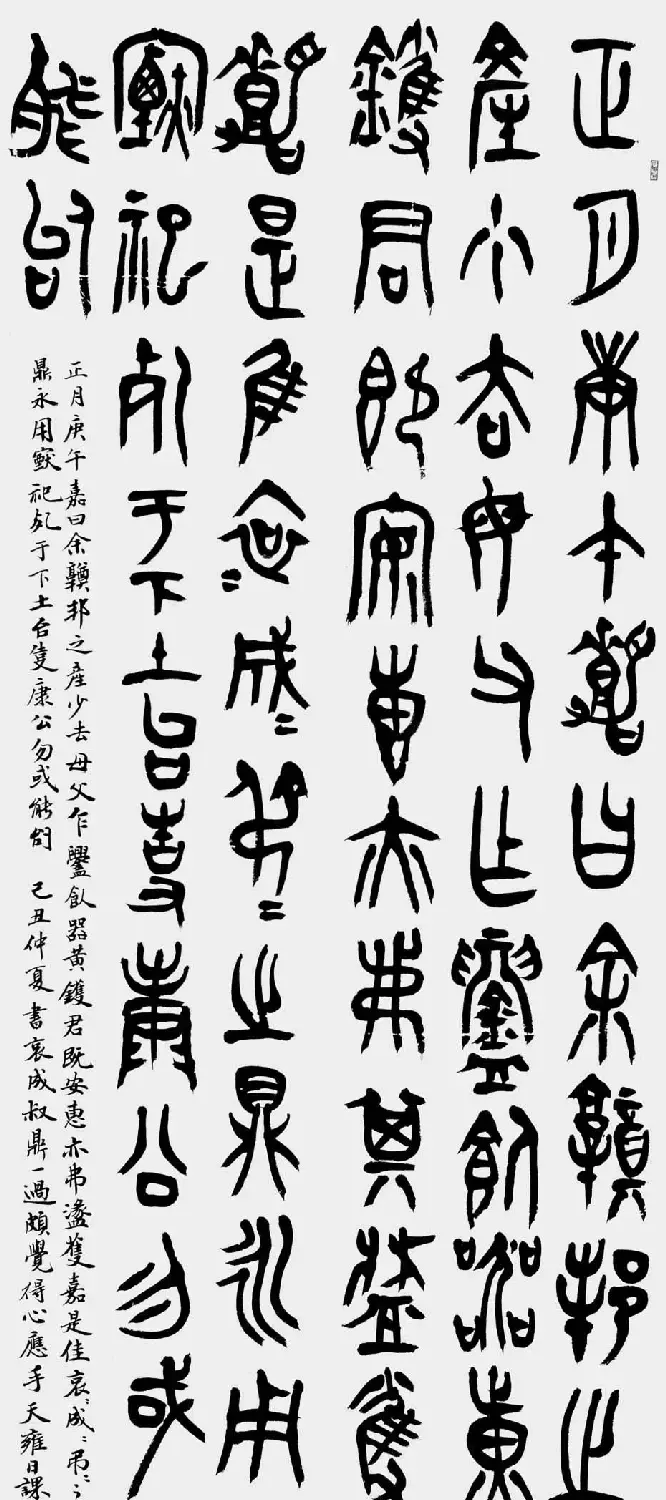 正月庚午嘉曰余鄭邦之
産少去母父乍鑄飤器黃
鑊君既安惠亦弗其盪隻
嘉是隹哀=成=弔=之鼎永用
禋祀死于下土台事康公勿或
能怠
正月庚午嘉曰余邦之産少去母父乍鑄飤器黃鑊君既安惠亦弗盪蒦嘉是隹哀=成=弔=之
鼎永用祀死于下土台康公勿或能 己丑仲夏書哀成叔鼎一過頗覺得心應手天雍日課